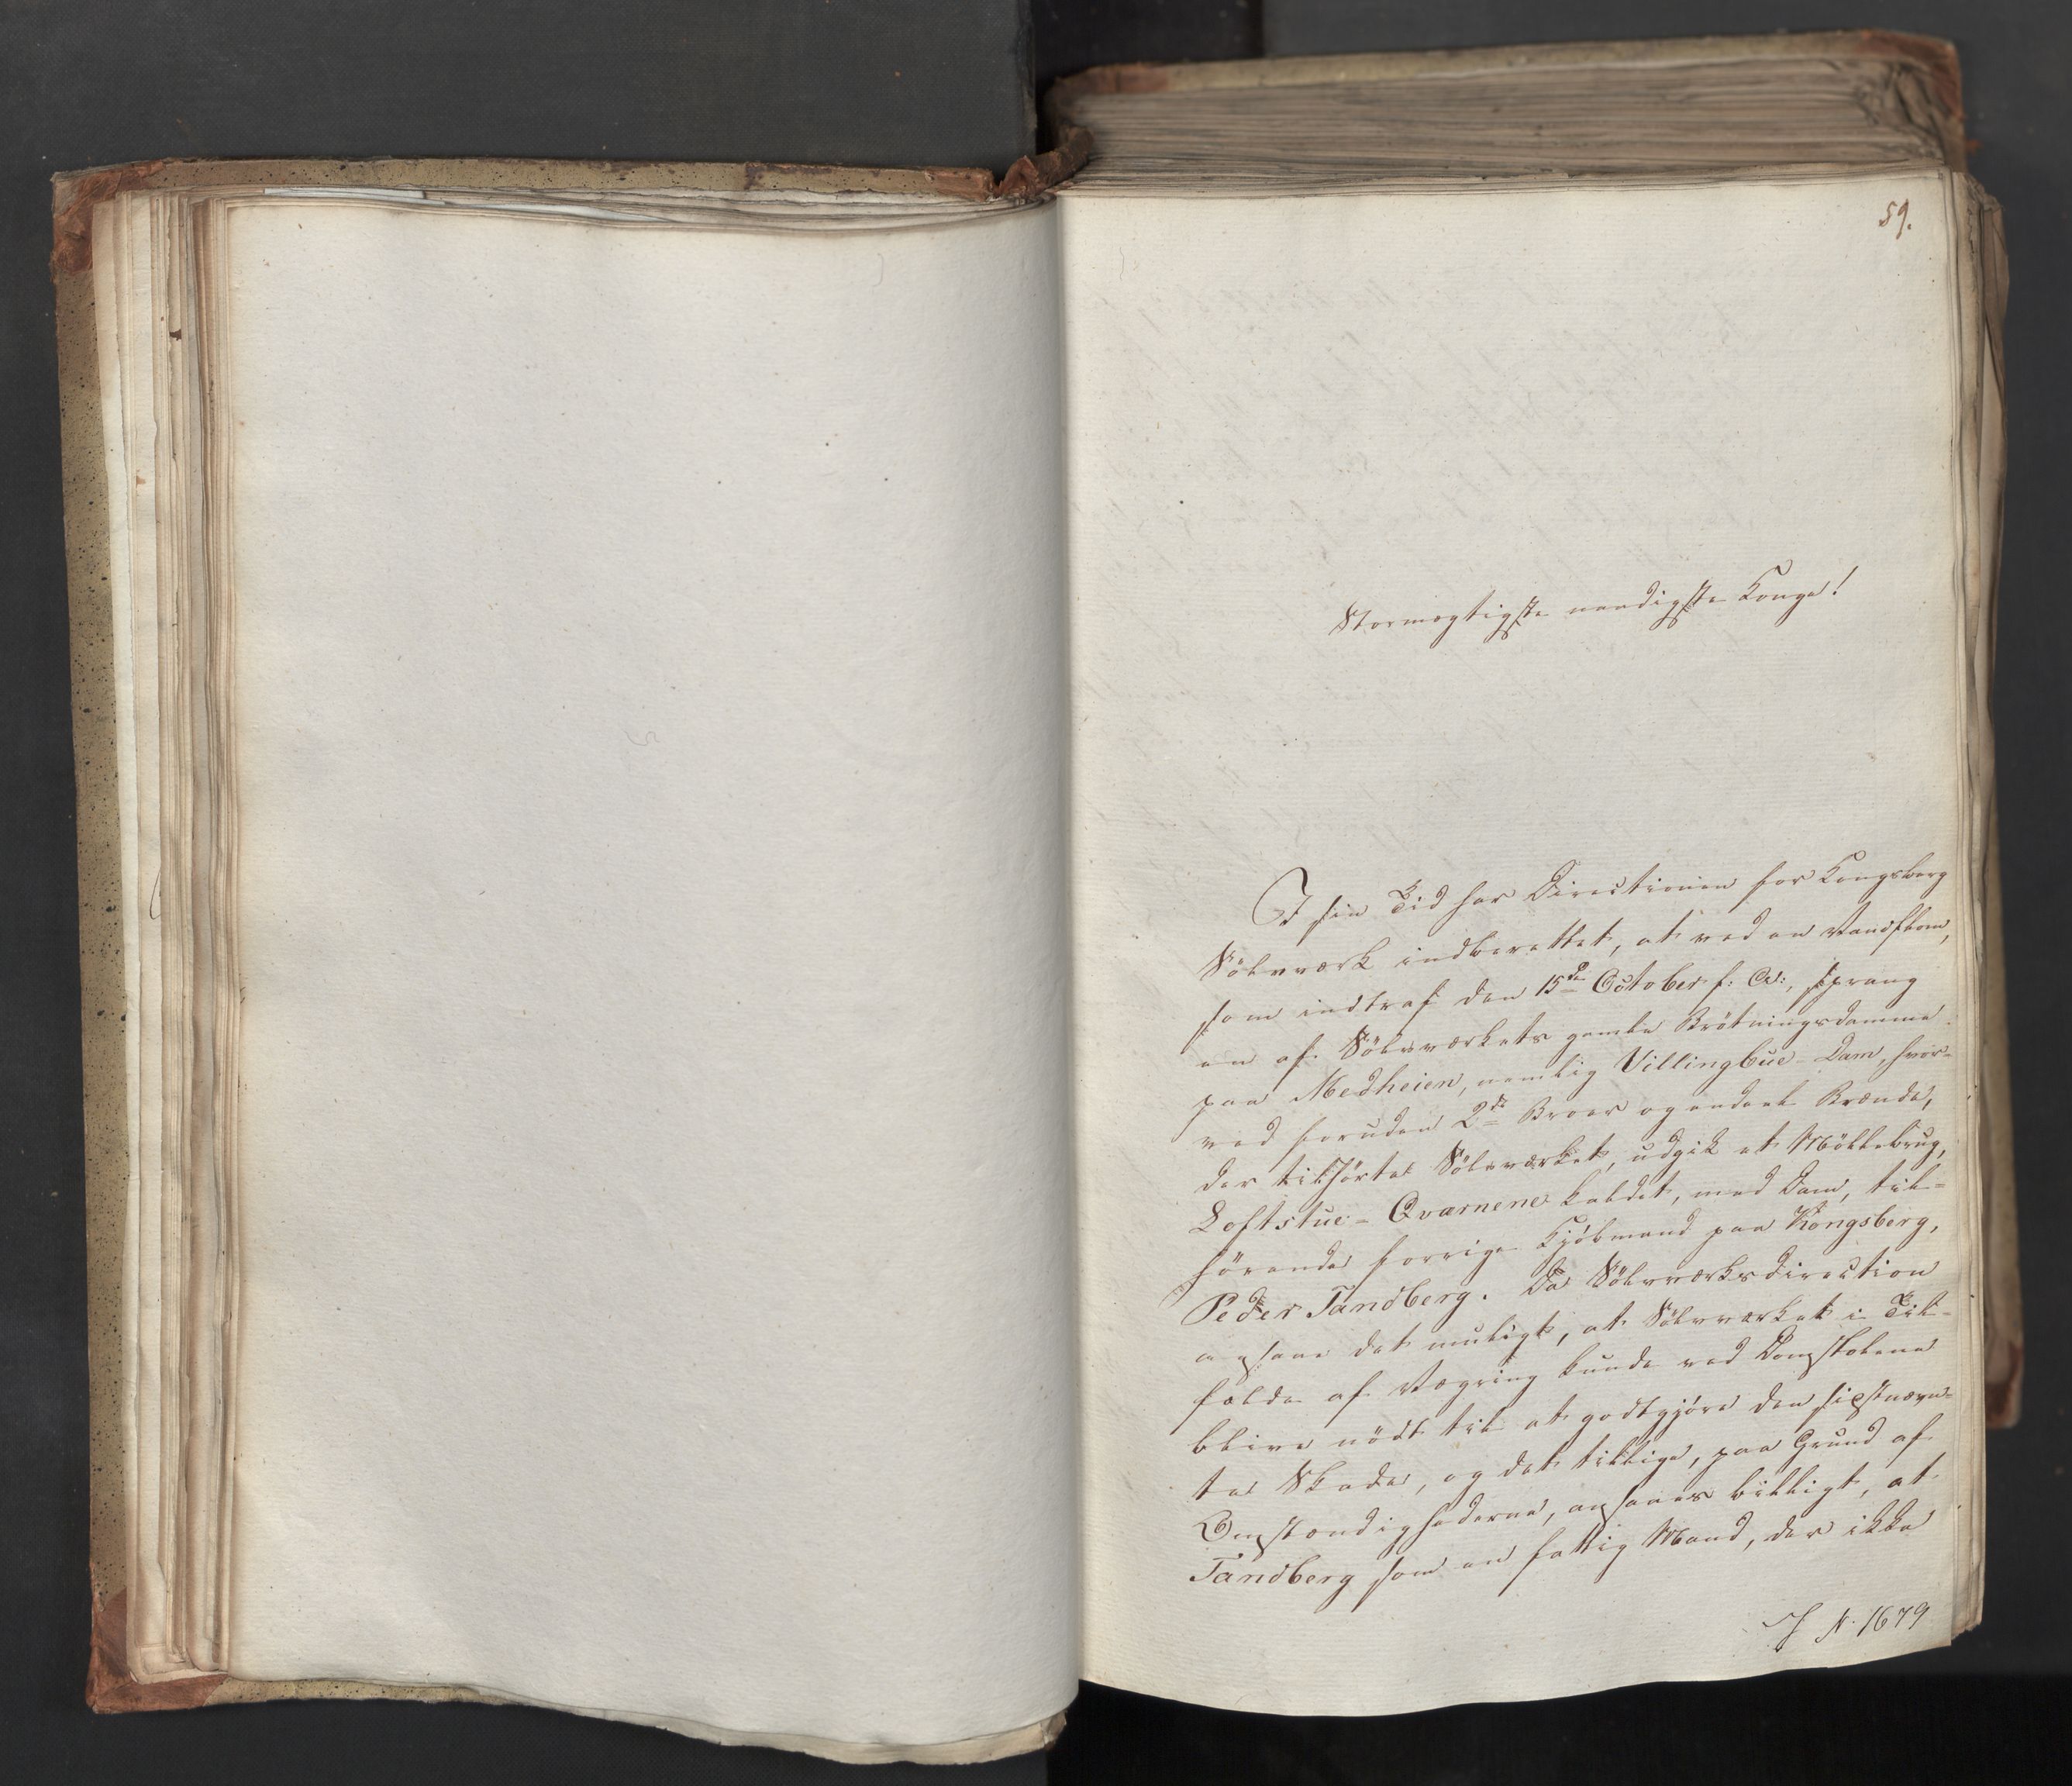 59.
Stormægtigste naadigste Konge!
I sin Tid har Directionen for Kongsberg
Sölvværk indberettet, at ved en Vandflom,
som indtraf den 15de October f: A:, sprang
en af Sölvværkets gamle Brötningsdamme
paa Medheien, nemlig Villingbue-Dam, hvor-
ved foruden 2de Broer og endeel Brænde,
der tilhörte Sölvværket, udgik et Möllebrug,
Loftstue-Qværnene kaldet, med Dam, til-
hörende forrige Kjöbmand paa Kongsberg,
Peder Tandberg. Da Sölvværksdirection
ansaae det muligt, at Sölvværket i Til-
fælde af Vægring kunde ved Domstolene
blive nödt til at godtgjöre den sidstnævn-
te Skade, og det tillige, paa Grund af
Omstændighederne, ansaaes billigt, at
Tandberg som en fattig Mand, der ikke
J N. 1679